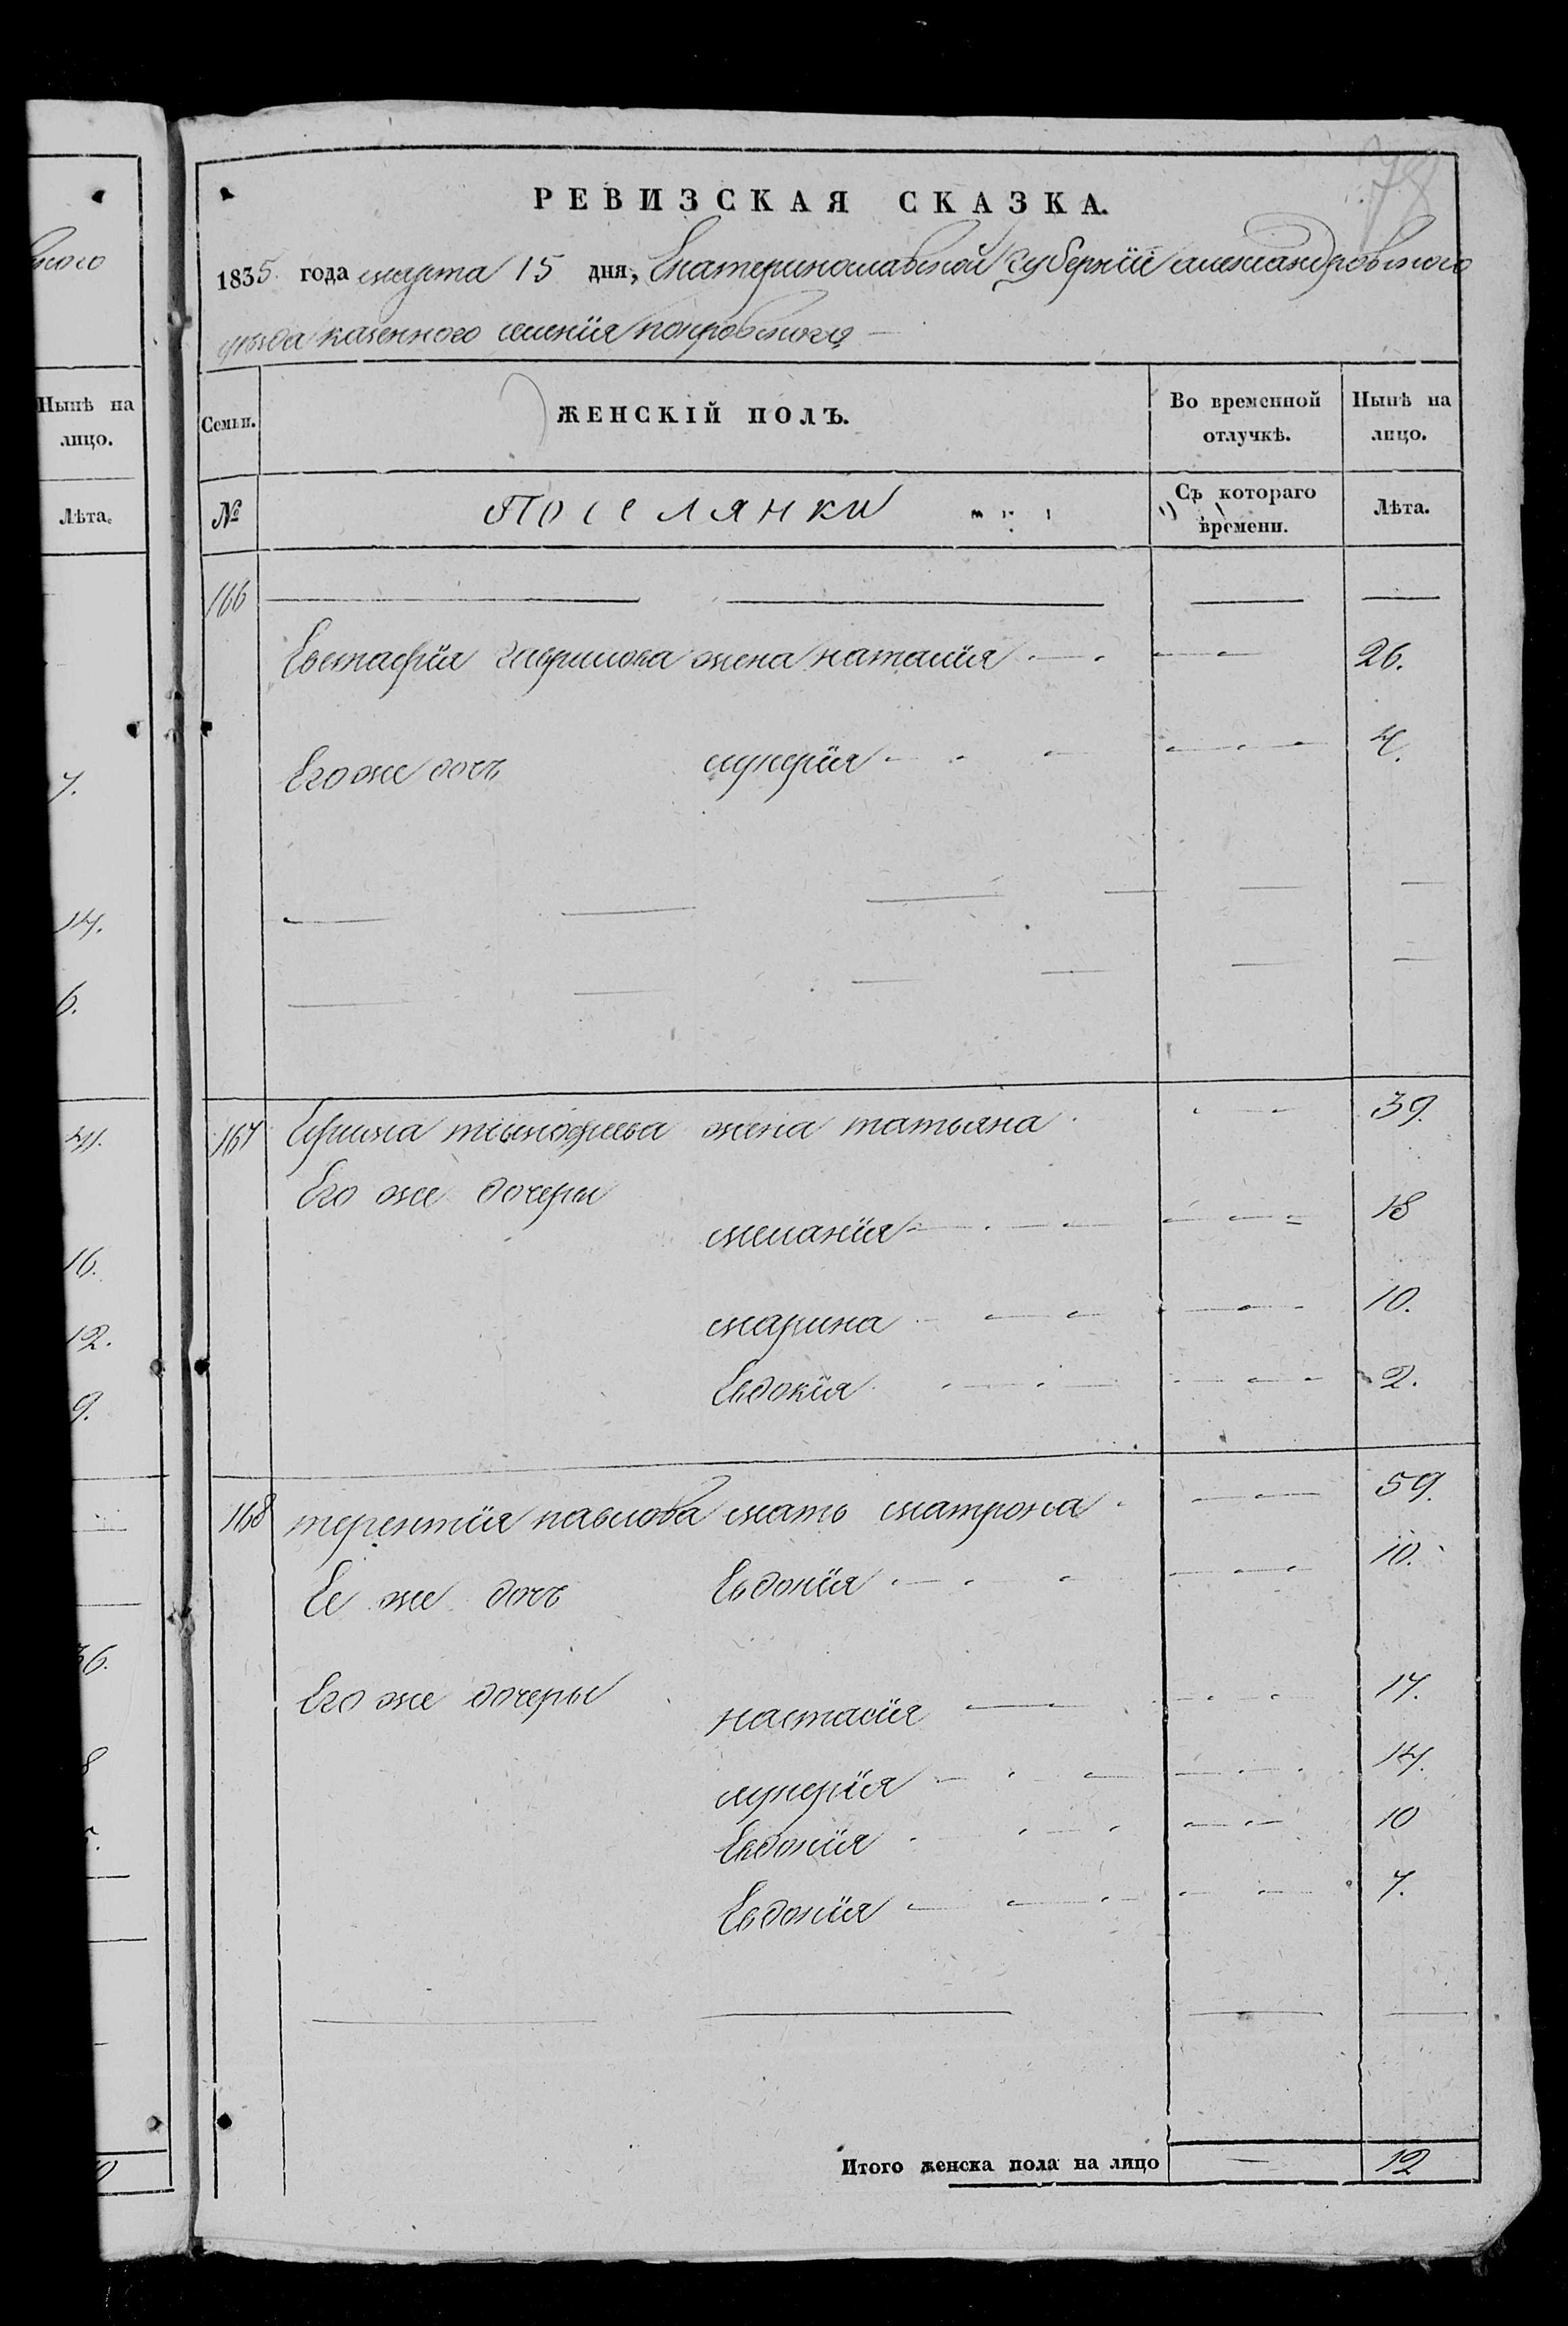 ного
Нынѣ на
лицо.
Лѣта.
7.
14.
6.
41.
16.
12.
9.
36.
8
78
РЕВИЗСКАЯ СКАЗКА.
1835 года марта 15 дня, Екатеринославской губернїи александровского
уѣзда казенного селенїя покровского
Семьи. ЖЕНСКІЙ ПОЛЪ. Во временной отлучкѣ. Нынѣ на лицо.
№ ПОСЕЛЯНКИ Съ котораго времени. Лѣта.
166
Евстафїя гаврилова жена наталїя 26.
Его же дочь лукерїя 4.
167 Ефима тимофеева жена татьяна 39.
Его же дочеры
меланїя 18
марина 10.
Евдокїя 2.
168 терентїя павлова мать матрона 59.
Ее же дочь Евдокїя 10.
Его же дочеры
настасїя 17.
лукерїя 14.
Евдокїя 10
Евдокїя 7.
Итого женска пола на лицо — 12